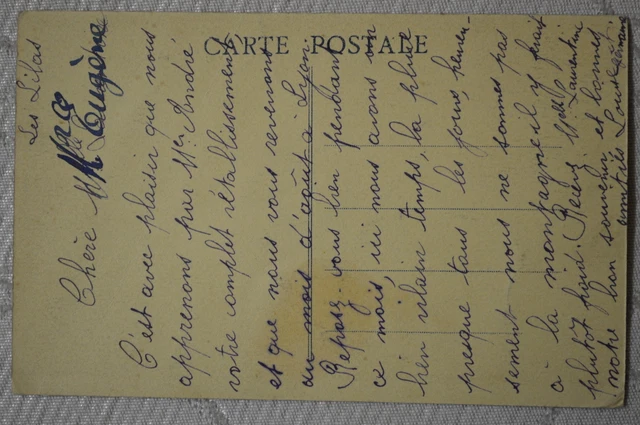 CARTE POSTALE
Les Lilas
Chère Mme Eugène
C'est avec plaisir que nous
apprenons par Mer André
votre complet rétablissement
et que nous vous reverrons
au mois d'août à Lyon.
Reposez vous bien pendant
ce mois, ici nous avons un
bien vilain temps, la pluie
presque tous les jours, heureu-
sement nous ne sommes pas
à la montagne il y ferait
plutôt froid. Recevez
notre bon souvenir et bonnes